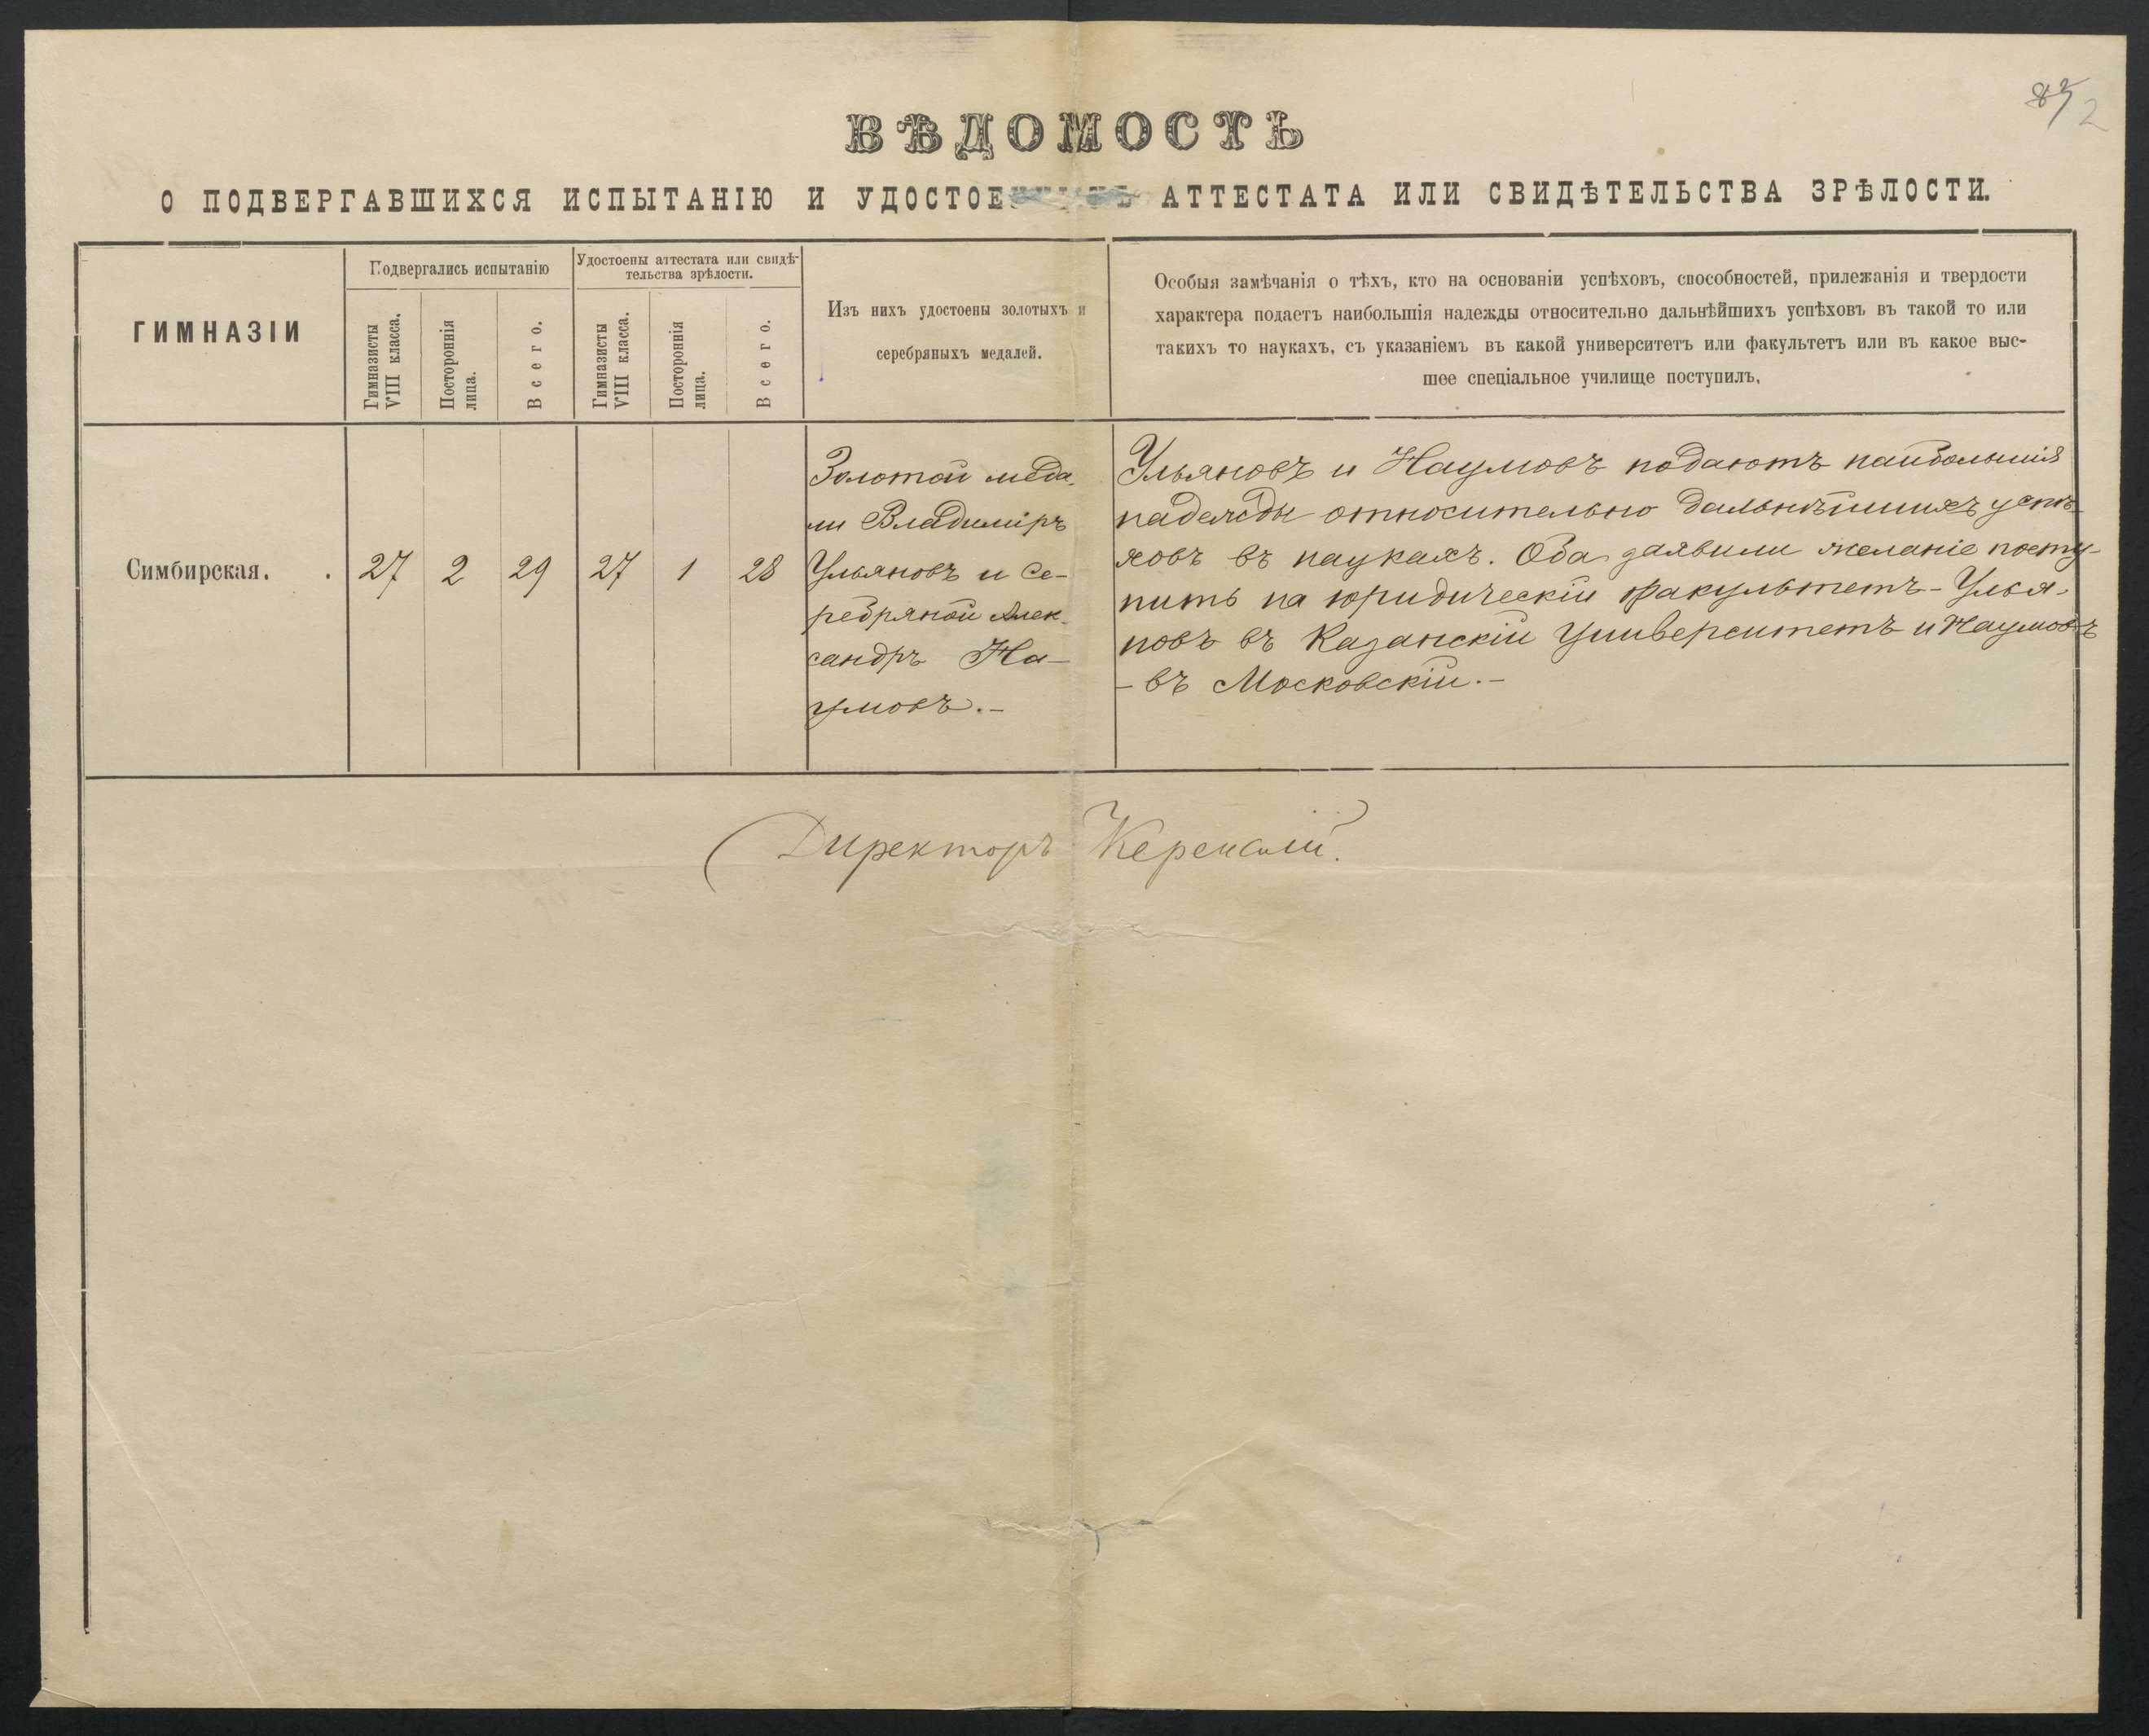 2
ВѢДОМОСТЬ
О ПОДВЕРГАВШИХСЯ ИСПЫТАНІЮ И АТТЕСТАТА ИЛИ СВИДѢТЕЛЬСТВА ЗРѢЛОСТИ.
ГИМНАЗІИ
Подвергались испытанію
Гимназисты
VIII класса.
Постороннія
лица.
Всего.
Удостоены аттестата или свидѣ-
тельства зрѣлости.
Гимназисты
VIII класса.
Постороннія
лица.
Всего.
Изъ нихъ удостоены золотыхъ и
серебряныхъ медалей.
Особыя замѣчанія о тѣхъ, кто на основаніи успѣховъ, способностей, прилежанія и твердости
характера подаетъ наибольшія надежды относительно дальнѣйшихъ успѣховъ въ такой то или
такихъ то наукахъ, съ указаніемъ въ какой университетъ или факультетъ или въ какое выс-
шее спеціальное училище поступилъ.
Симбирская.
27
2
29
27
1
28
Золотой меда-
ли Владиміръ
Ульяновъ и Се-
ребряной Алек-
сандръ На-
умовъ.-
Ульяновъ и Наумовъ подаютъ наибольшія
надежды относительно дальнѣйшихъ успѣ-
ховъ въ наукахъ. Оба заявили желаніе посту-
пить на юридическій факультетъ - Улья-
новъ въ Казанскій Университетъ и Наумовъ
- въ Московскій.-
Директоръ Керенскій.